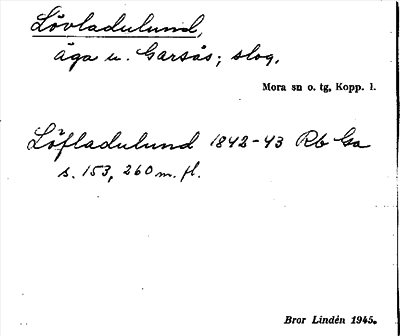 Lövladulund,
äga u. Garsås; skog.
Mora sn o. tg, Kopp. l.
Löfladulund 1842-43 Rb Ga
s. 153, 260 m. fl.
Bror Lindén 1945.